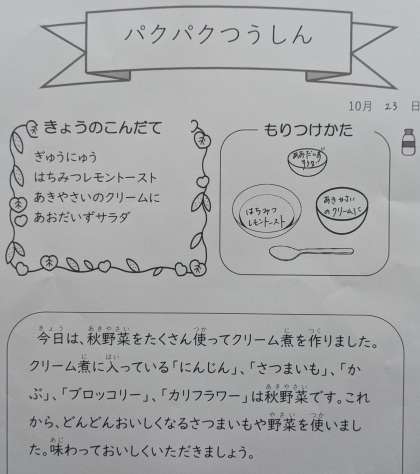 パクパクつうしん
10月 23 日
きょうのこんだて
ぎゅうにゅう
はちみつレモントースト
あきやさいのクリームに
あおだいずサラダ
もりつけかた
あおだいず
サラダ
はちみつ
レモントースト
あきやさい
のクリームに
今日は、秋野菜をたくさん使ってクリーム煮を作りました。
クリーム煮に入っている「にんじん」、「さつまいも」、「か
ぶ」、「ブロッコリー」、「カリフラワー」は秋野菜です。これ
から、どんどんおいしくなるさつまいもや野菜を使いまし
た。味わっておいしくいただきましょう。